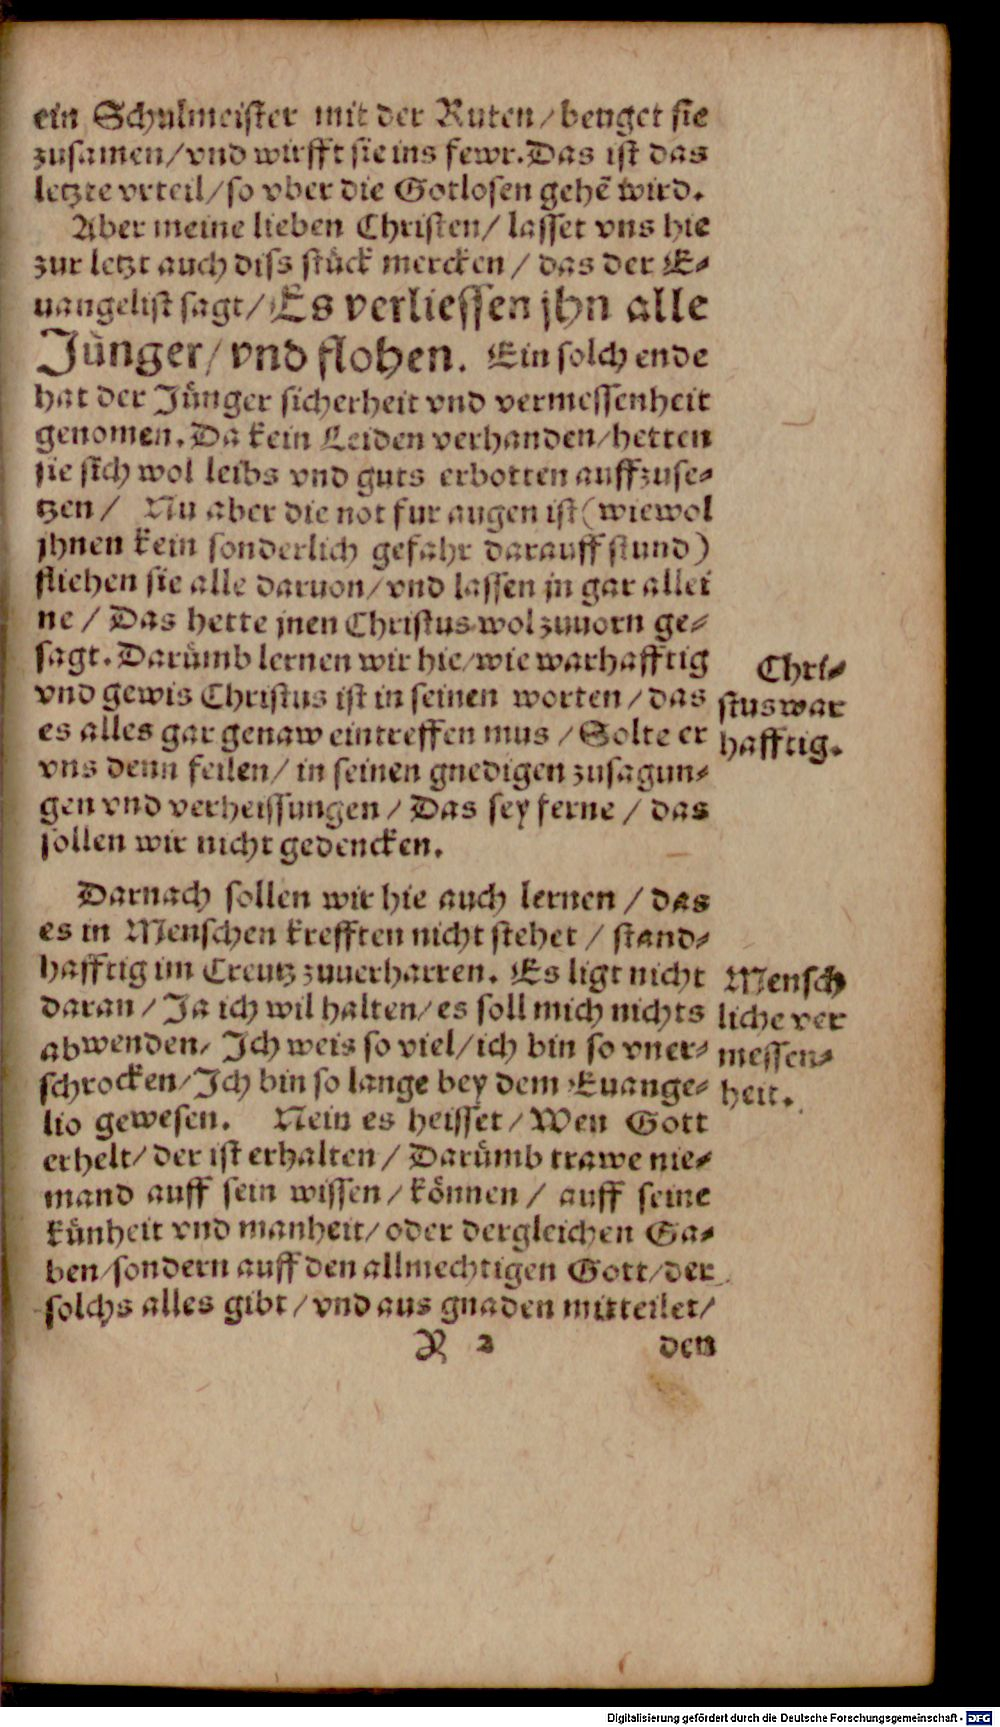 ein Schulmeister mit der Ruten/benget sie
zusamen/vnd wirfft sie ins fewr. Das ist das
letzte vrteil/so vber die Gotlosen gehẽ wird.
Aber meine lieben Christen/ lasset vns hie
zur letzt auch diss stůck mercken / das der E⸗
uangelist sagt/ Es verliessen jhn alle
Jůnger/ vnd flohen. Ein solch ende
hat der Jůnger sicherheit vnd vermessenheit
genomen. Da kein Leiden verhanden/hetten
sie sich wol leibs vnd guts erbotten auffzuse⸗
tzen / Nu aber die not fur augen ist (wiewol
jhnen kein sonderlich gefahr darauff stund)
fliehen sie alle daruon/vnd lassen jn gar allei
ne / Das hette jnen Christus wol zuuorn ge⸗
sagt. Darůmb lernen wir hie/wie warhafftig
vnd gewis Christus ist in seinen worten / das
es alles gar genaw eintreffen mus / Solte er
vns denn feilen/ in seinen gnedigen zusagun⸗
gen vnd verheissungen / Das sey ferne / das
sollen wir nicht gedencken.
Chri⸗
stus war
hafftig.
Darnach sollen wir hie auch lernen / das
es in Menschen krefften nicht stehet / stand⸗
hafftig im Creutz zuuerharren. Es ligt nicht
daran / Ja ich wil halten/es soll mich nichts
abwenden/ Ich weis so viel/ich bin so vner⸗
schrocken/Ich bin so lange bey dem Euange⸗
lio gewesen. Nein es heisset / Wen Gott
erhelt/ der ist erhalten / Darůmb trawe nie⸗
mand auff sein wissen / kőnnen / auff seine
kůnheit vnd manheit/ oder dergleichen Ga⸗
ben/sondern auff den allmechtigen Gott/der
solchs alles gibt / vnd aus gnaden mitteilet/
Mensch
liche ver
messen⸗
heit.
R 2 den
Digitalisierung gefördert durch die Deutsche Forschungsgemeinschaft - DFG